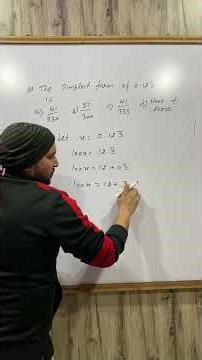 The Simplest form of 0.123
is
a) 41/330 b) 37/300 c) 41/333 d) None of these
Let x = 0.123
100x = 12.3
100x = 12 + 0.3
100x = 12 + 3